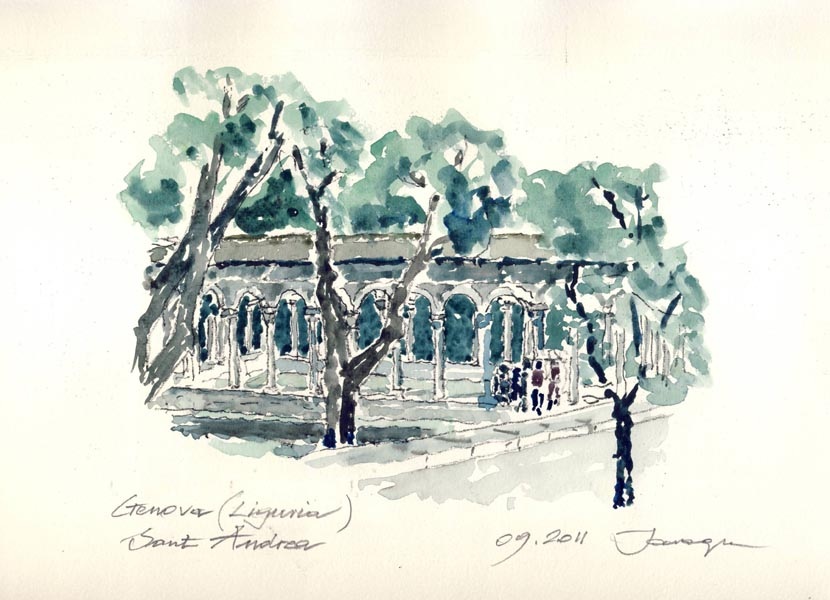 Genova (Liguria)
Sant Andrea
09.2011